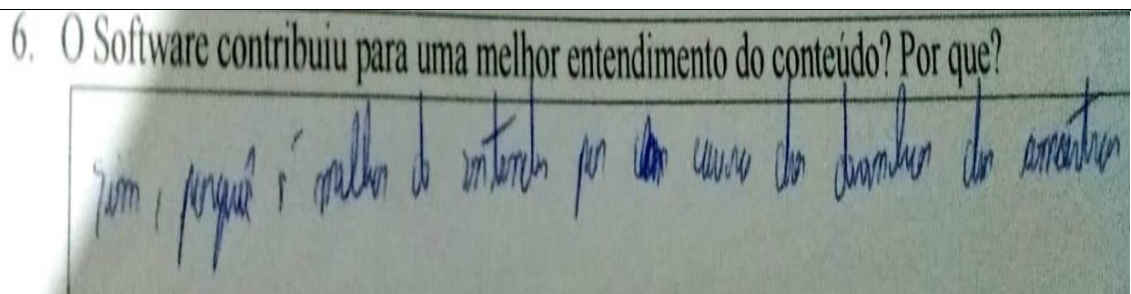 6. O Software contribuiu para uma melhor entendimento do conteúdo? Por que?
sim, porquê é melhor do entender por causa dos desenhos das